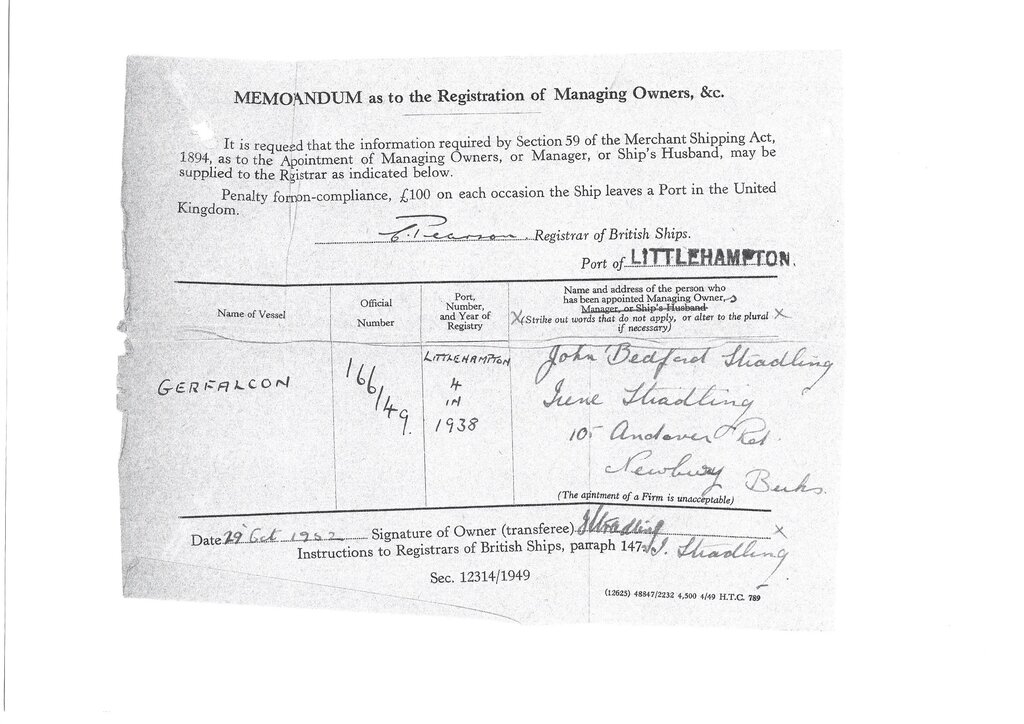 MEMOANDUM as to the Registration of Managing Owners, &c.
It is requeed that the information required by Section 59 of the Merchant Shipping Act,
1894, as to the Apointment of Managing Owners, or Manager, or Ship's Husband, may be
supplied to the Rgistrar as indicated below.
Penalty fornon-compliance, £100 on each occasion the Ship leaves a Port in the United
Kingdom.
C. Pearson, Registrar of British Ships.
Port of LITTLEHAMPTON.
Name of Vessel
Official
Number
Port,
Number,
and Year of
Registry
Name and address of the person who
has been appointed Managing Owner, s
Manager, or Ship's Husband
X (Strike out words that do not apply, or alter to the plural X
if necessary)
GERFALCON
166149.
LITTLEHAMPTON
4
IN
1938
John Bedford Stradling
Irene Stradling
105 Andover Rd.
Newbury Berks.
(The apintment of a Firm is unacceptable)
Date 29 Oct 1952 Signature of Owner (transferee) J Stradling X
Instructions to Registrars of British Ships, paraph 147. I. Stradling
Sec. 12314/1949
(12625) 48847/2232 4,500 4/49 H.T.C. 789